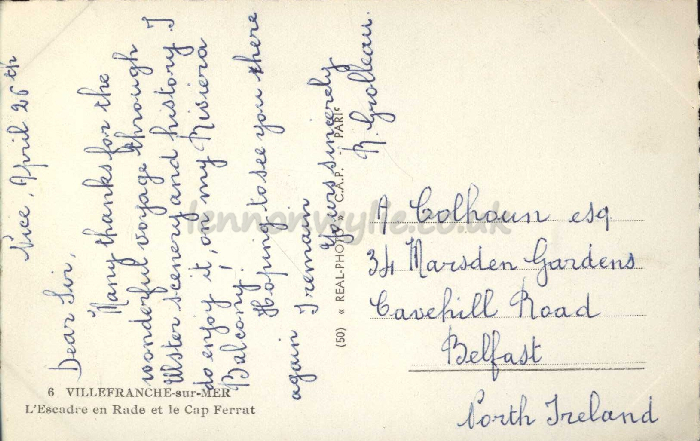 Nice, April 26th
Dear Sir,
Many thanks for the
wonderful voyage through
Ulster scenery and history. I
do enjoy it, on my Riviera
Balcony!
Hoping to see you there
again I remain
Yours sincerely
R. Grolleau.
A Colhoun esq
34 Marsden Gardens
Cavehill Road
Belfast
North Ireland
(50) « REAL-PHOTO » C.A.P. PARIS
6 VILLEFRANCHE-sur-MER
L'Escadre en Rade et le Cap Ferrat
lennonwylie.co.uk